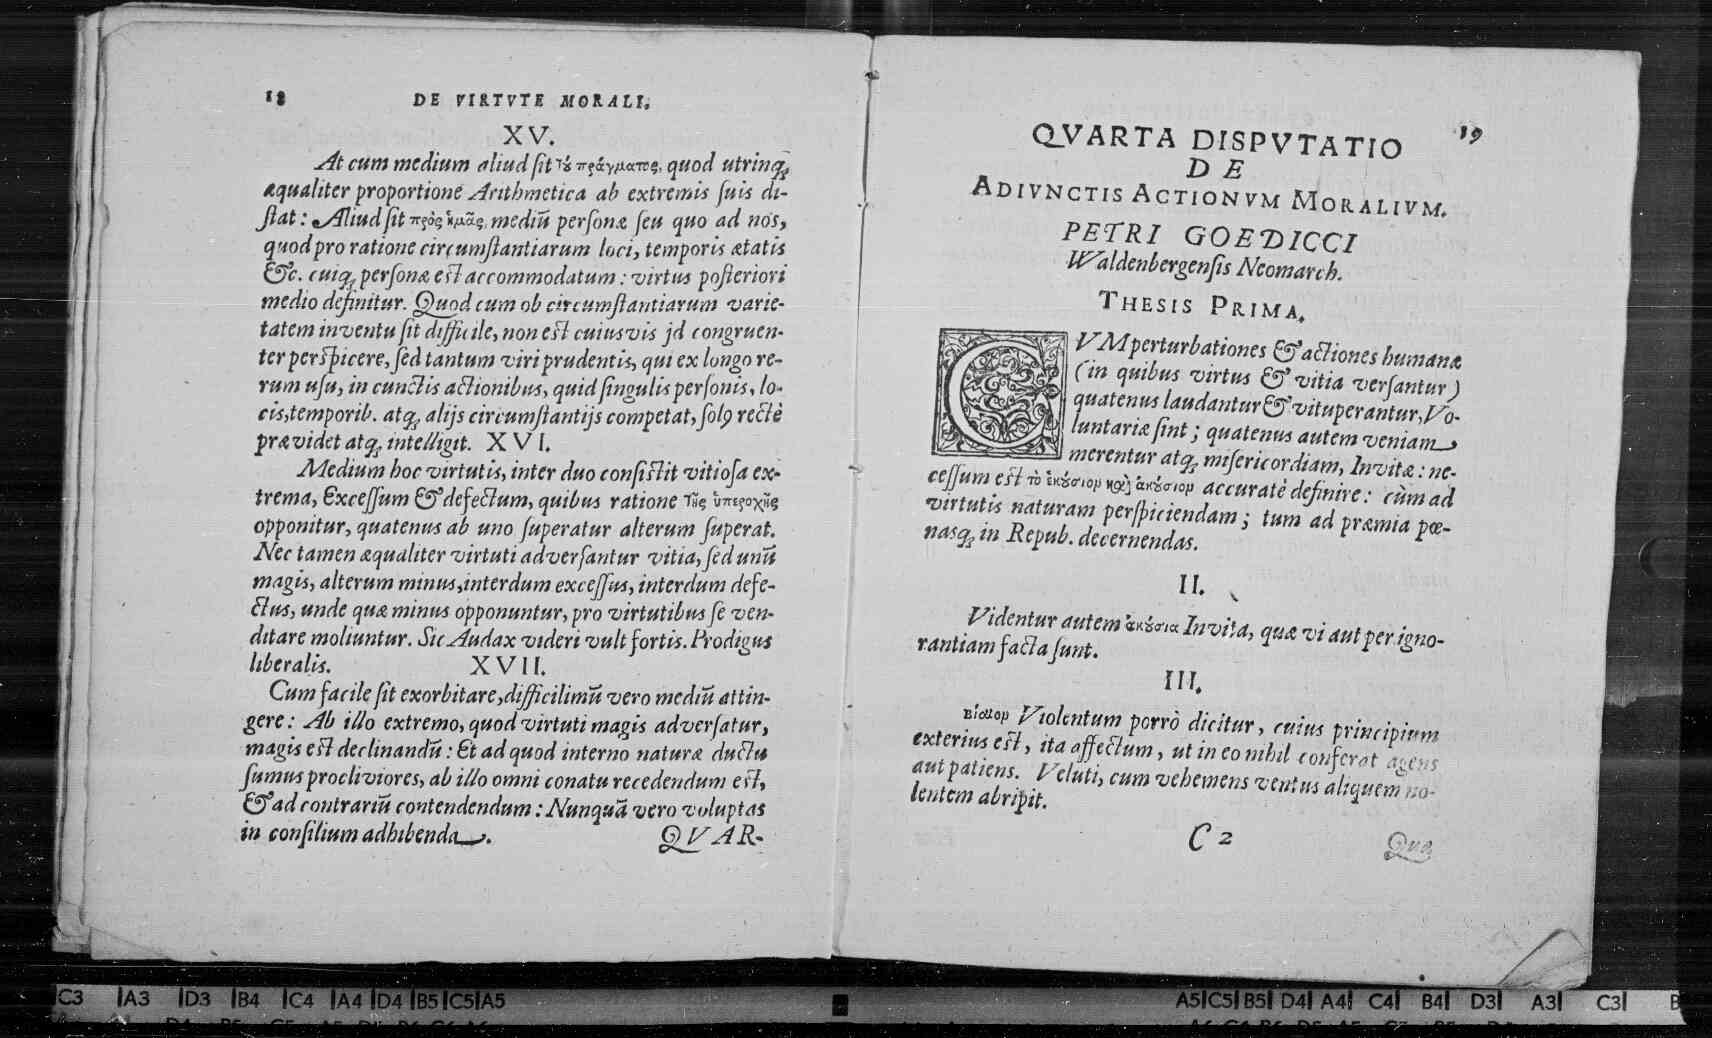 18 DE VIRTVTE MORALI.
XV.
At cum medium aliud ſit τȣ̃ πράγματος, quod utrinq;
æqualiter proportione Arithmetica ab extremis ſuis di-
ſtat: Aliud ſit πρὸς ἡμᾶς, mediũ perſonæ ſeu quo ad nos,
quod pro ratione circumſtantiarum loci, temporis ætatis
&c. cuiq; perſonæ eſt accommodatum: virtus poſteriori
medio definitur. Quod cum ob circumſtantiarum varie-
tatem inventu ſit difficile, non eſt cuiusvis jd congruen-
ter perſpicere, ſed tantum viri prudentis, qui ex longo re-
rum uſu, in cunctis actionibus, quid ſingulis perſonis, lo-
cis, temporib. atq; alijs circumſtantijs competat, ſolꝰ rectè
prævidet atq; intelligit. XVI.
Medium hoc virtutis, inter duo conſiſtit vitioſa ex-
trema, Exceſſum & defectum, quibus ratione τῆς ὑπεροχῆς
opponitur, quatenus ab uno ſuperatur alterum ſuperat.
Nec tamen æqualiter virtuti adverſantur vitia, ſed unũ
magis, alterum minus, interdum exceſſus, interdum defe-
ctus, unde quæ minus opponuntur, pro virtutibus ſe ven-
ditare moliuntur. Sic Audax videri vult fortis. Prodigus
liberalis. XVII.
Cum facile ſit exorbitare, difficilimũ vero mediũ attin-
gere: Ab illo extremo, quod virtuti magis adverſatur,
magis eſt declinandũ: Et ad quod interno naturæ ductu
ſumus procliviores, ab illo omni conatu recedendum eſt,
& ad contrariũ contendendum: Nunquã vero voluptas
in conſilium adhibenda.
QVAR-
19
QVARTA DISPVTATIO
DE
ADIVNCTIS ACTIONVM MORALIVM.
PETRI GOEDICCI
Waldenbergenſis Neomarch.
THESIS PRIMA.
CVM perturbationes & actiones humanæ
(in quibus virtus & vitia verſantur)
quatenus laudantur & vituperantur, Vo-
luntariæ ſint; quatenus autem veniam
merentur atq; miſericordiam, Invitæ: ne-
ceſſum eſt τὸ ἑκȣ́σιον καὶ ἀκȣ́σιον accuratè definire: cùm ad
virtutis naturam perſpiciendam; tum ad præmia pœ-
nasq; in Repub. decernendas.
II.
Videntur autem ἀκȣ́σια Invita, quæ vi aut per igno-
rantiam facta ſunt.
III.
βίαιον Violentum porrò dicitur, cuius principium
exterius eſt, ita affectum, ut in eo nihil conferat agens
aut patiens. Veluti, cum vehemens ventus aliquem no-
lentem abripit.
C 2
Quæ
C3 A3 D3 B4 C4 A4 D4 B5 C5 A5
A5 C5 B5 D4 A4 C4 B4 D3 A3 C3 B